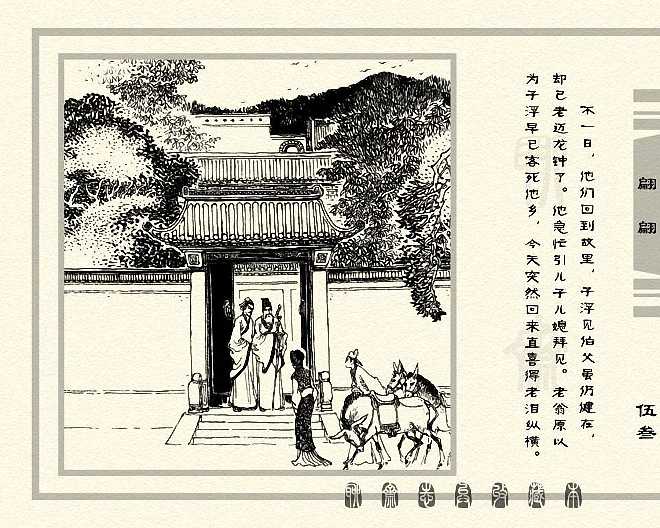 不一日，他们回到故里，子浮见伯父虽仍健在，
却已老迈龙钟了。他急忙引儿子儿媳拜见。老翁原以
为子浮早已客死他乡，今天突然回来直喜得老泪纵横。
翩翩
伍叁